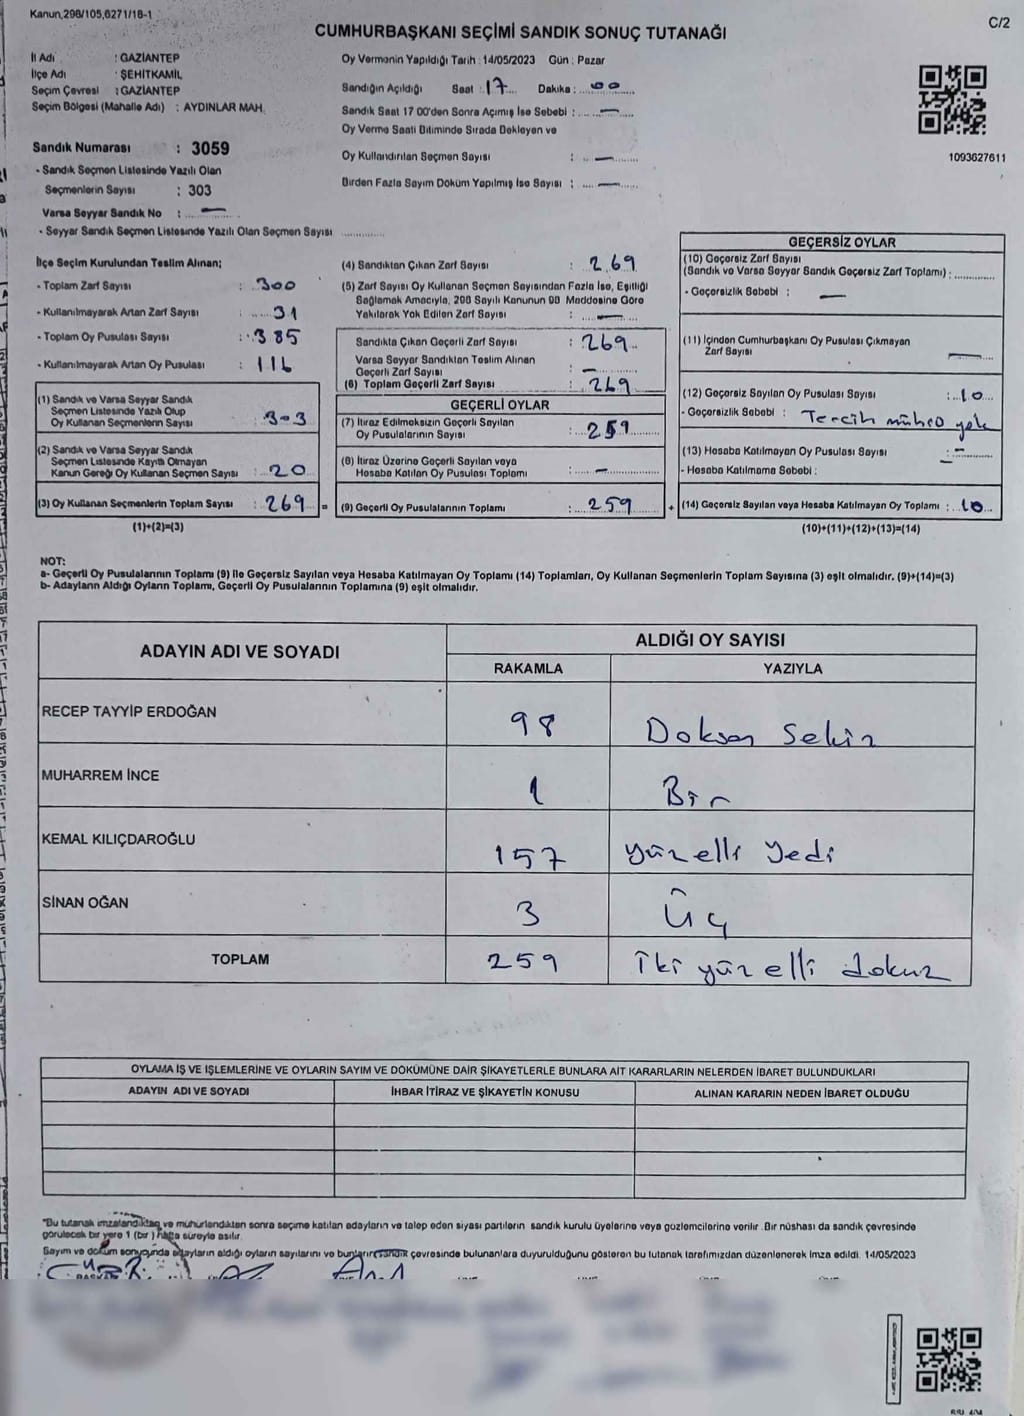 Kanun,298/105,6271/18-1
C/2
CUMHURBAŞKANI SEÇİMİ SANDIK SONUÇ TUTANAĞI
İl Adı : GAZİANTEP
İlçe Adı : ŞEHİTKAMİL
Seçim Çevresi : GAZİANTEP
Seçim Bölgesi (Mahalle Adı) : AYDINLAR MAH.
Oy Vermenin Yapıldığı Tarih : 14/05/2023 Gün : Pazar
Sandığın Açıldığı Saat : 17 Dakika : 00
Sandık Saat 17 00'den Sonra Açımış İse Sebebi : —
Oy Verme Saati Bitiminde Sırada Bekleyen ve
Oy Kullandırılan Seçmen Sayısı : —
Birden Fazla Sayım Döküm Yapılmış İse Sayısı : —
1093627611
Sandık Numarası : 3059
- Sandık Seçmen Listesinde Yazılı Olan
Seçmenlerin Sayısı : 303
Varsa Seyyar Sandık No : —
- Seyyar Sandık Seçmen Listesinde Yazılı Olan Seçmen Sayısı
İlçe Seçim Kurulundan Teslim Alınan;
- Toplam Zarf Sayısı : 300
- Kullanılmayarak Artan Zarf Sayısı : 31
- Toplam Oy Pusulası Sayısı : 385
- Kullanılmayarak Artan Oy Pusulası : 116
(1) Sandık ve Varsa Seyyar Sandık
Seçmen Listesinde Yazılı Olup
Oy Kullanan Seçmenlerin Sayısı : 3-3
(2) Sandık ve Varsa Seyyar Sandık
Seçmen Listesinde Kayıtlı Olmayan
Kanun Gereği Oy Kullanan Seçmen Sayısı : 20
(3) Oy Kullanan Seçmenlerin Toplam Sayısı : 269 =
(1)+(2)=(3)
(4) Sandıktan Çıkan Zarf Sayısı : 269
(5) Zarf Sayısı Oy Kullanan Seçmen Sayısından Fazla İse, Eşitliği
Sağlamak Amacıyla, 298 Sayılı Kanunun 98 Maddesine Göre
Yakılarak Yok Edilen Zarf Sayısı : —
Sandıkta Çıkan Geçerli Zarf Sayısı : 269
Varsa Seyyar Sandıktan Teslim Alınan
Geçerli Zarf Sayısı : —
(6) Toplam Geçerli Zarf Sayısı : 269
GEÇERLİ OYLAR
(7) İtiraz Edilmeksizin Geçerli Sayılan
Oy Pusulalarının Sayısı : 259
(8) İtiraz Üzerine Geçerli Sayılan veya
Hesaba Katılan Oy Pusulası Toplamı : —
(9) Geçerli Oy Pusulalarının Toplamı : 259 +
GEÇERSİZ OYLAR
(10) Geçersiz Zarf Sayısı
(Sandık ve Varsa Seyyar Sandık Geçersiz Zarf Toplamı) :
- Geçersizlik Sebebi : —
(11) İçinden Cumhurbaşkanı Oy Pusulası Çıkmayan
Zarf Sayısı —
(12) Geçersiz Sayılan Oy Pusulası Sayısı : 10
- Geçersizlik Sebebi : Tercih mührü yok
(13) Hesaba Katılmayan Oy Pusulası Sayısı : —
- Hesaba Katılmama Sebebi :
(14) Geçersiz Sayılan veya Hesaba Katılmayan Oy Toplamı : 10
(10)+(11)+(12)+(13)=(14)
NOT:
a- Geçerli Oy Pusulalarının Toplamı (9) İle Geçersiz Sayılan veya Hesaba Katılmayan Oy Toplamı (14) Toplamları, Oy Kullanan Seçmenlerin Toplam Sayısına (3) eşit olmalıdır. (9)+(14)=(3)
b- Adayların Aldığı Oyların Toplamı, Geçerli Oy Pusulalarının Toplamına (9) eşit olmalıdır.
ADAYIN ADI VE SOYADI
ALDIĞI OY SAYISI
RAKAMLA YAZIYLA
RECEP TAYYİP ERDOĞAN 98 Doksan Sekiz
MUHARREM İNCE 1 Bir
KEMAL KILIÇDAROĞLU 157 yüzelli yedi
SİNAN OĞAN 3 Üç
TOPLAM 259 iki yüzelli dokuz
OYLAMA İŞ VE İŞLEMLERİNE VE OYLARIN SAYIM VE DÖKÜMÜNE DAİR ŞİKAYETLERLE BUNLARA AİT KARARLARIN NELERDEN İBARET BULUNDUKLARI
ADAYIN ADI VE SOYADI İHBAR İTİRAZ VE ŞİKAYETİN KONUSU ALINAN KARARIN NEDEN İBARET OLDUĞU
"Bu tutanak imzalandıktan ve mühürlendikten sonra seçime katılan adayların ve talep eden siyasi partilerin sandık kurulu üyelerine veya gözlemcilerine verilir. Bir nüshası da sandık çevresinde
görülecek bir yere 1 (bir) hafta süreyle asılır.
Sayım ve döküm sonucunda adayların aldığı oyların sayılarını ve bunların sandık çevresinde bulunanlara duyurulduğunu gösteren bu tutanak tarafımızdan düzenlenerek imza edildi. 14/05/2023